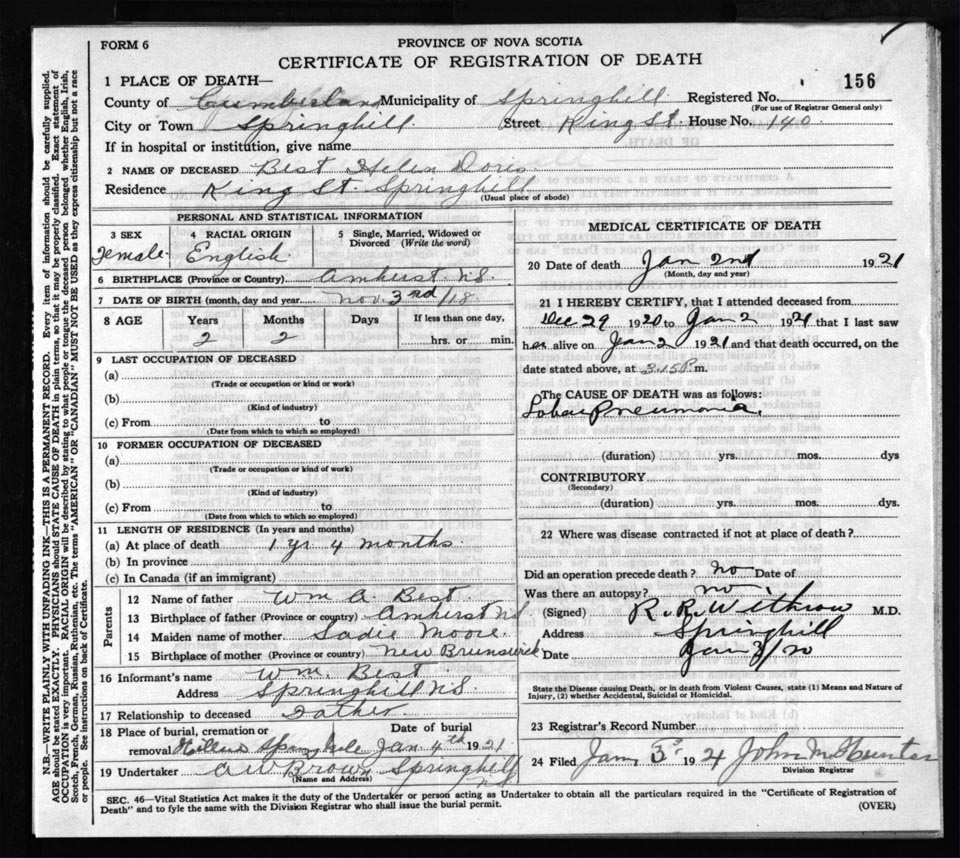 FORM 6
PROVINCE OF NOVA SCOTIA
CERTIFICATE OF REGISTRATION OF DEATH
156
1 PLACE OF DEATH—
County of Cumberland Municipality of Springhill Registered No.
(For use of Registrar General only)
City or Town Springhill Street King St. House No. 140
If in hospital or institution, give name
2 NAME OF DECEASED Best Helen Doris
Residence King St. Springhill
(Usual place of abode)
PERSONAL AND STATISTICAL INFORMATION
3 SEX Female
4 RACIAL ORIGIN English
5 Single, Married, Widowed or Divorced (Write the word)
6 BIRTHPLACE (Province or Country) Amherst N.S.
7 DATE OF BIRTH (month, day and year) Nov. 3rd/18
8 AGE Years Months Days If less than one day,
2 2 hrs. or min.
9 LAST OCCUPATION OF DECEASED
(a)
(Trade or occupation or kind of work)
(b)
(Kind of industry)
(c) From to
(Date from which to which so employed)
10 FORMER OCCUPATION OF DECEASED
(a)
(Trade or occupation or kind of work)
(b)
(Kind of industry)
(c) From to
(Date from which to which so employed)
11 LENGTH OF RESIDENCE (In years and months)
(a) At place of death 1 yr 4 months
(b) In province
(c) In Canada (if an immigrant)
Parents
12 Name of father Wm A. Best
13 Birthplace of father (Province or country) Amherst N.S
14 Maiden name of mother Sadie Moore
15 Birthplace of mother (Province or country) New Brunswick
16 Informant's name Wm. Best
Address Springhill N.S.
17 Relationship to deceased Father
18 Place of burial, cremation or removal Springhill
Date of burial Jan 4th 1921
19 Undertaker A W Brown Springhill NS
(Name and Address)
MEDICAL CERTIFICATE OF DEATH
20 Date of death Jan 2nd 1921
(Month, day and year)
21 I HEREBY CERTIFY, that I attended deceased from
Dec 29 1920 to Jan 2 1921 that I last saw
her alive on Jan 2 1921 and that death occurred, on the
date stated above, at 3.15 P.m.
The CAUSE OF DEATH was as follows:
Lobar Pneumonia.
(duration) yrs. mos. dys
CONTRIBUTORY
(Secondary)
(duration) yrs. mos. dys.
22 Where was disease contracted if not at place of death?
Did an operation precede death? no Date of
Was there an autopsy? no
(Signed) R. R. Withrow M.D.
Address Springhill
Date Jan 3/20
State the Disease causing Death, or in death from Violent Causes, state (1) Means and Nature of
Injury, (2) whether Accidental, Suicidal or Homicidal.
23 Registrar's Record Number
24 Filed Jan 3rd 1921 John M Hunter
Division Registrar
SEC. 46—Vital Statistics Act makes it the duty of the Undertaker or person acting as Undertaker to obtain all the particulars required in the "Certificate of Registration of
Death" and to fyle the same with the Division Registrar who shall issue the burial permit.
(OVER)
N.B.—WRITE PLAINLY WITH UNFADING INK—THIS IS A PERMANENT RECORD. Every item of information should be carefully supplied.
AGE should be stated EXACTLY. PHYSICIANS should STATE CAUSE OF DEATH in plain terms, so that it may be properly classified. Exact statement of
OCCUPATION is very important. RACIAL ORIGIN will be described by stating to what people or tongue the deceased person belonged whether English, Irish,
Scotch, French, German, Russian, Ruthenian, etc. The terms "AMERICAN" OR "CANADIAN" MUST NOT BE USED as they express citizenship but not a race
or people. See instructions on back of Certificate.